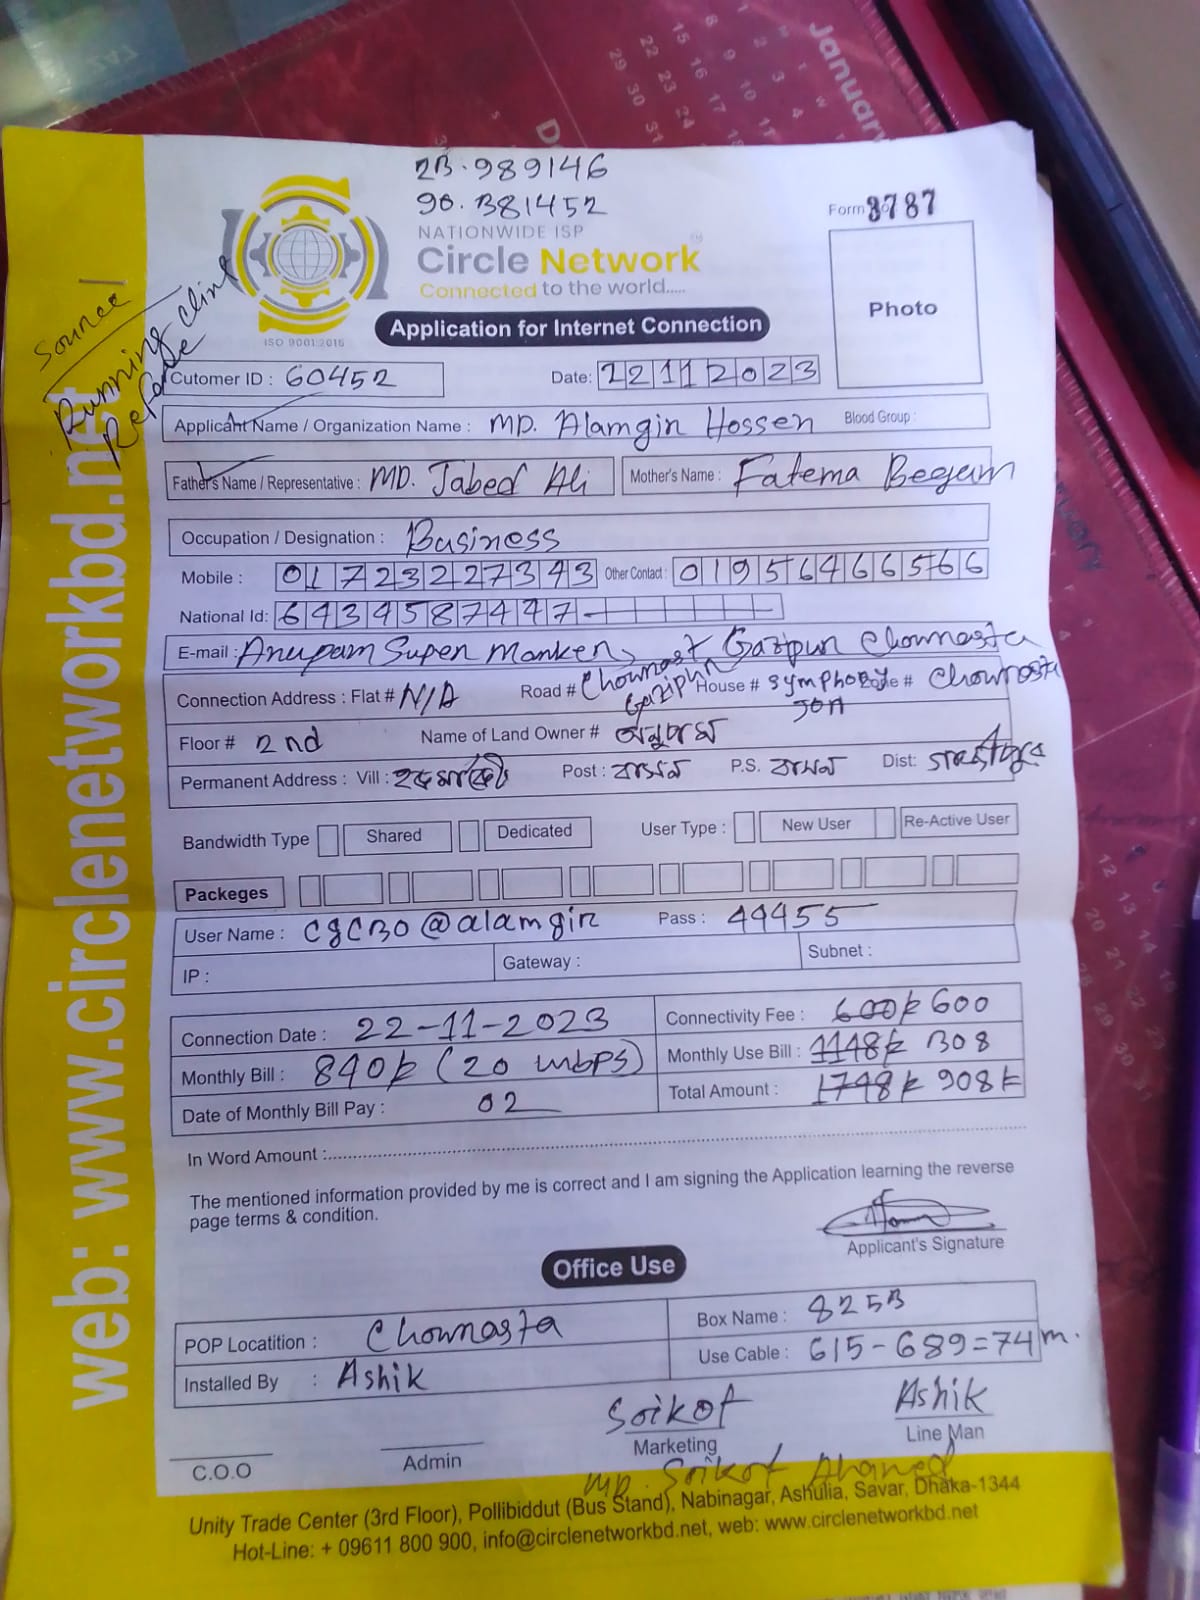 23.989146
90.381452
NATIONWIDE ISP
Circle Network
Connected to the world.....
ISO 9001:2015
Form 3787
Photo
Source
Running Clint
Refare
Application for Internet Connection
Cutomer ID : 60452
Date: 22112023
Applicant Name / Organization Name : MD. Alamgir Hossen Blood Group :
Father's Name / Representative : MD. Jabed Ali Mother's Name : Fatema Begum
Occupation / Designation : Business
Mobile : 01723227343 Other Contact : 01956466566
National Id: 6434587447
E-mail : Anupam Super Market, Gazipur Chowrasta
Connection Address : Flat # N/A Road # Chowrast Gazipur House # Symphony # Chowrasta
Floor # 2nd Name of Land Owner # অনুপম
Permanent Address : Vill : Post : বাসন P.S. বাসন Dist: গাজীপুর
Bandwidth Type Shared Dedicated User Type : New User Re-Active User
Packeges
User Name : cgc30@alamgir Pass : 44455
IP : Gateway : Subnet :
Connection Date : 22-11-2023 Connectivity Fee : 600/= 600
Monthly Bill : 840/= (20 mbps) Monthly Use Bill : 1148/= 308
Date of Monthly Bill Pay : 02 Total Amount : 1748/= 908/=
In Word Amount :
The mentioned information provided by me is correct and I am signing the Application learning the reverse
page terms & condition.
Applicant's Signature
Office Use
POP Locatition : Chowrasta Box Name : 8253
Installed By : Ashik Use Cable : 615-689=74m.
Soikot Ashik
C.O.O Admin Marketing Line Man
MD. Soikot Ahamed
Unity Trade Center (3rd Floor), Pollibiddut (Bus Stand), Nabinagar, Ashulia, Savar, Dhaka-1344
Hot-Line: + 09611 800 900, info@circlenetworkbd.net, web: www.circlenetworkbd.net
web: www.circlenetworkbd.net
January